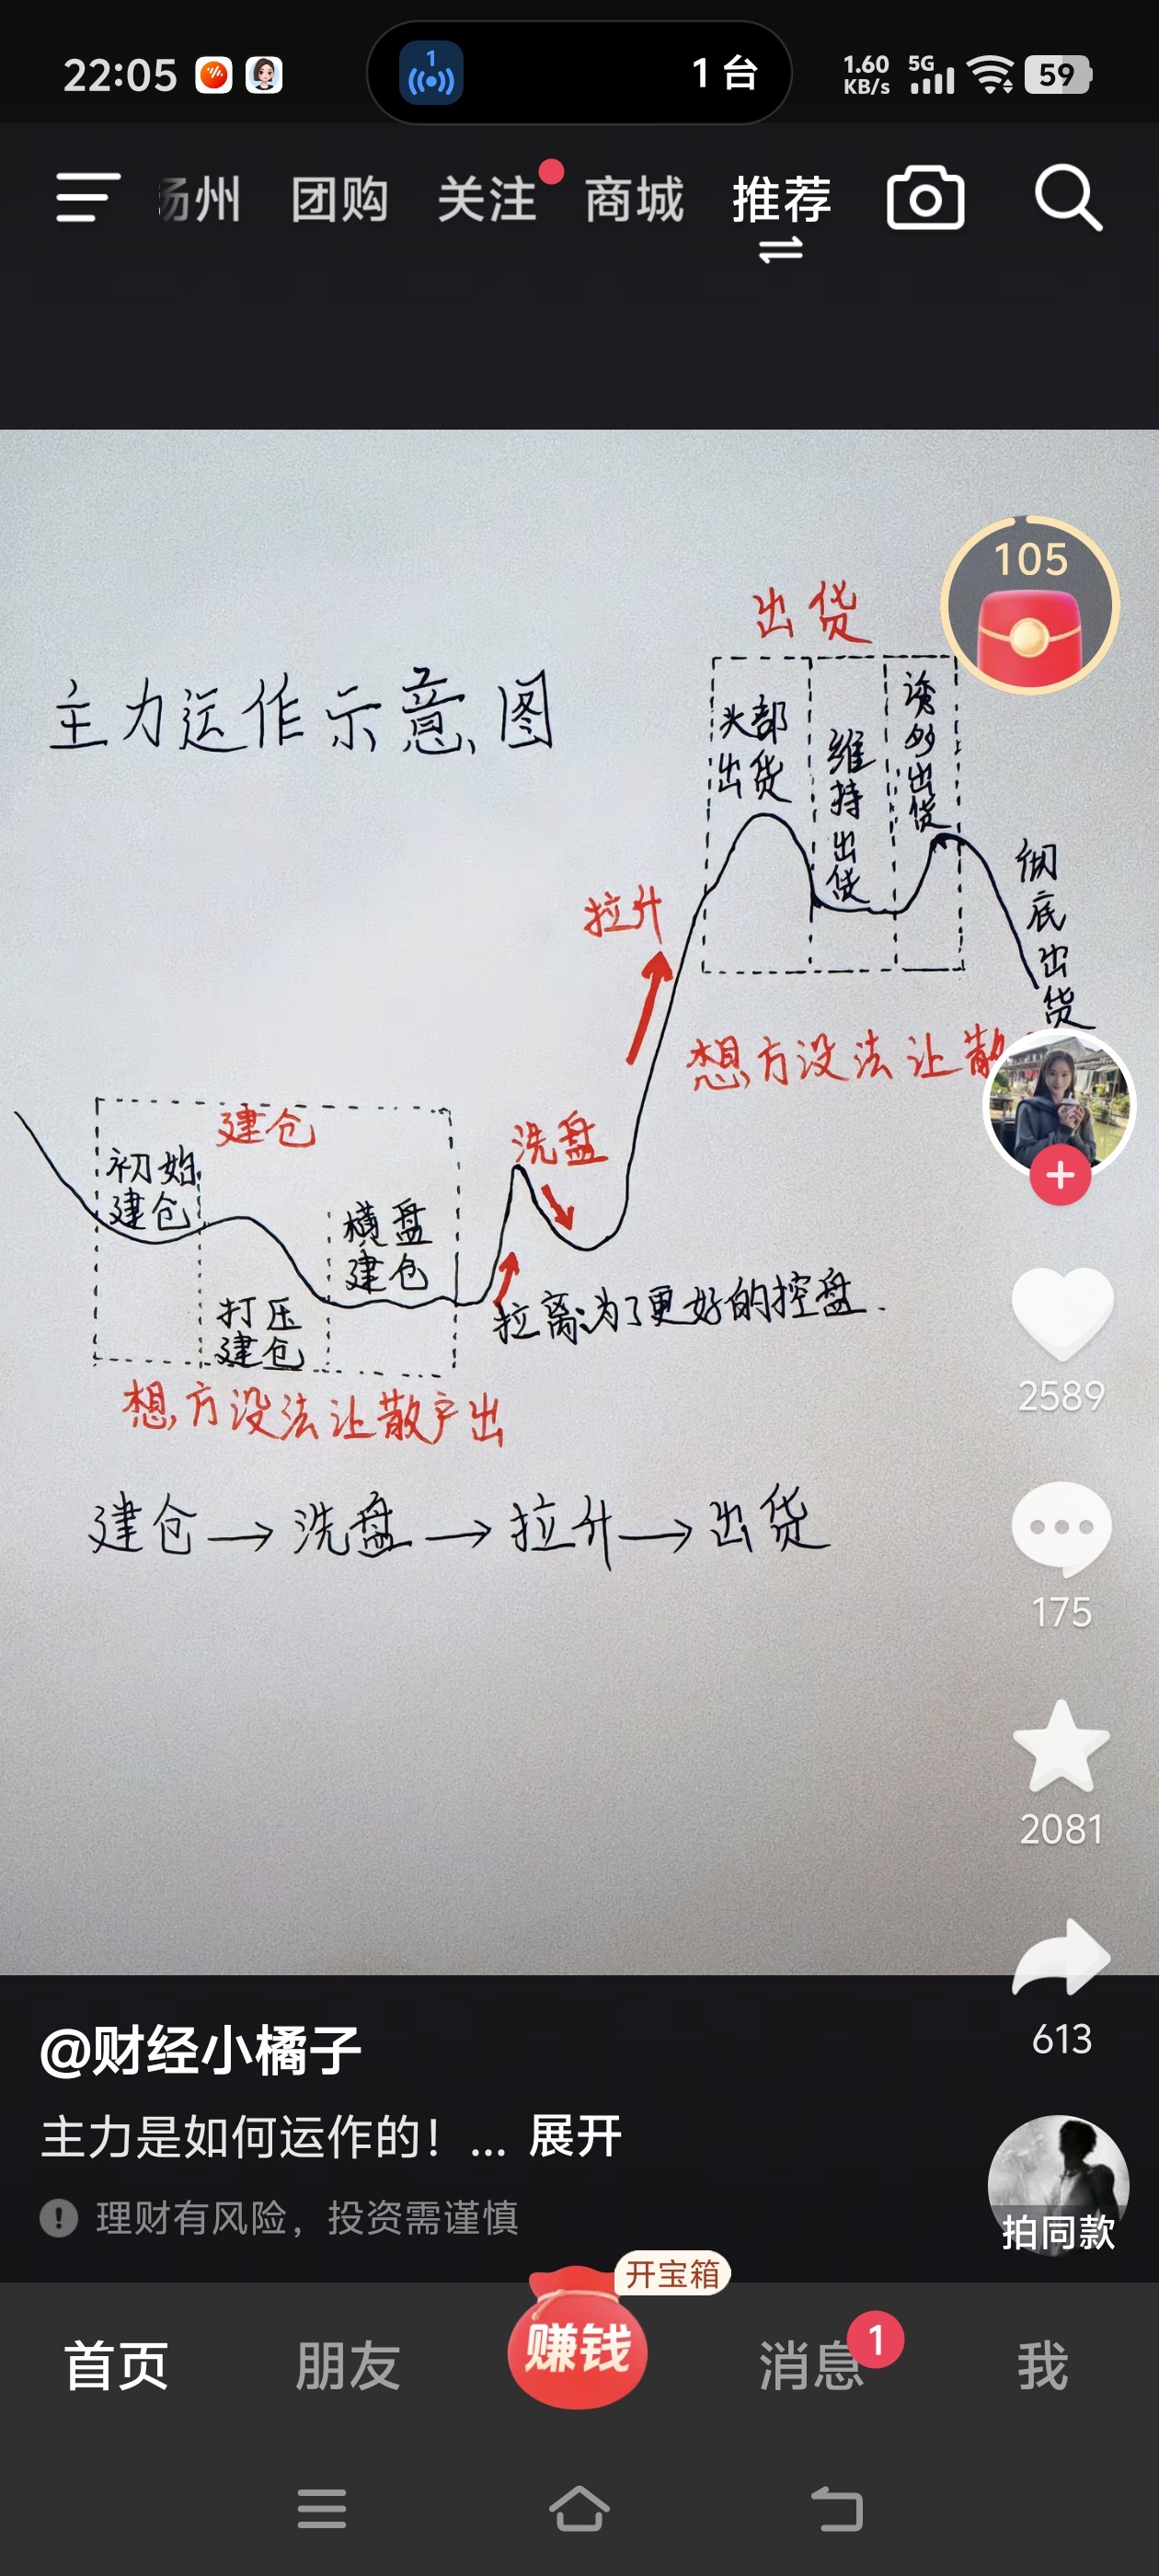 22:05
1
1 台
1.60 KB/s
5G
59
扬州 团购 关注 商城 推荐
105
出货
主力运作示意图
头部出货
维持出货
诱多出货
彻底出货
拉升
想方没法让散
建仓
初始建仓
洗盘
横盘建仓
打压建仓
拉离为了更好的控盘.
想方没法让散户出
建仓→洗盘→拉升→出货
2589
175
2081
613
@财经小橘子
主力是如何运作的！... 展开
理财有风险，投资需谨慎
拍同款
开宝箱
首页 朋友 赚钱 消息 1 我